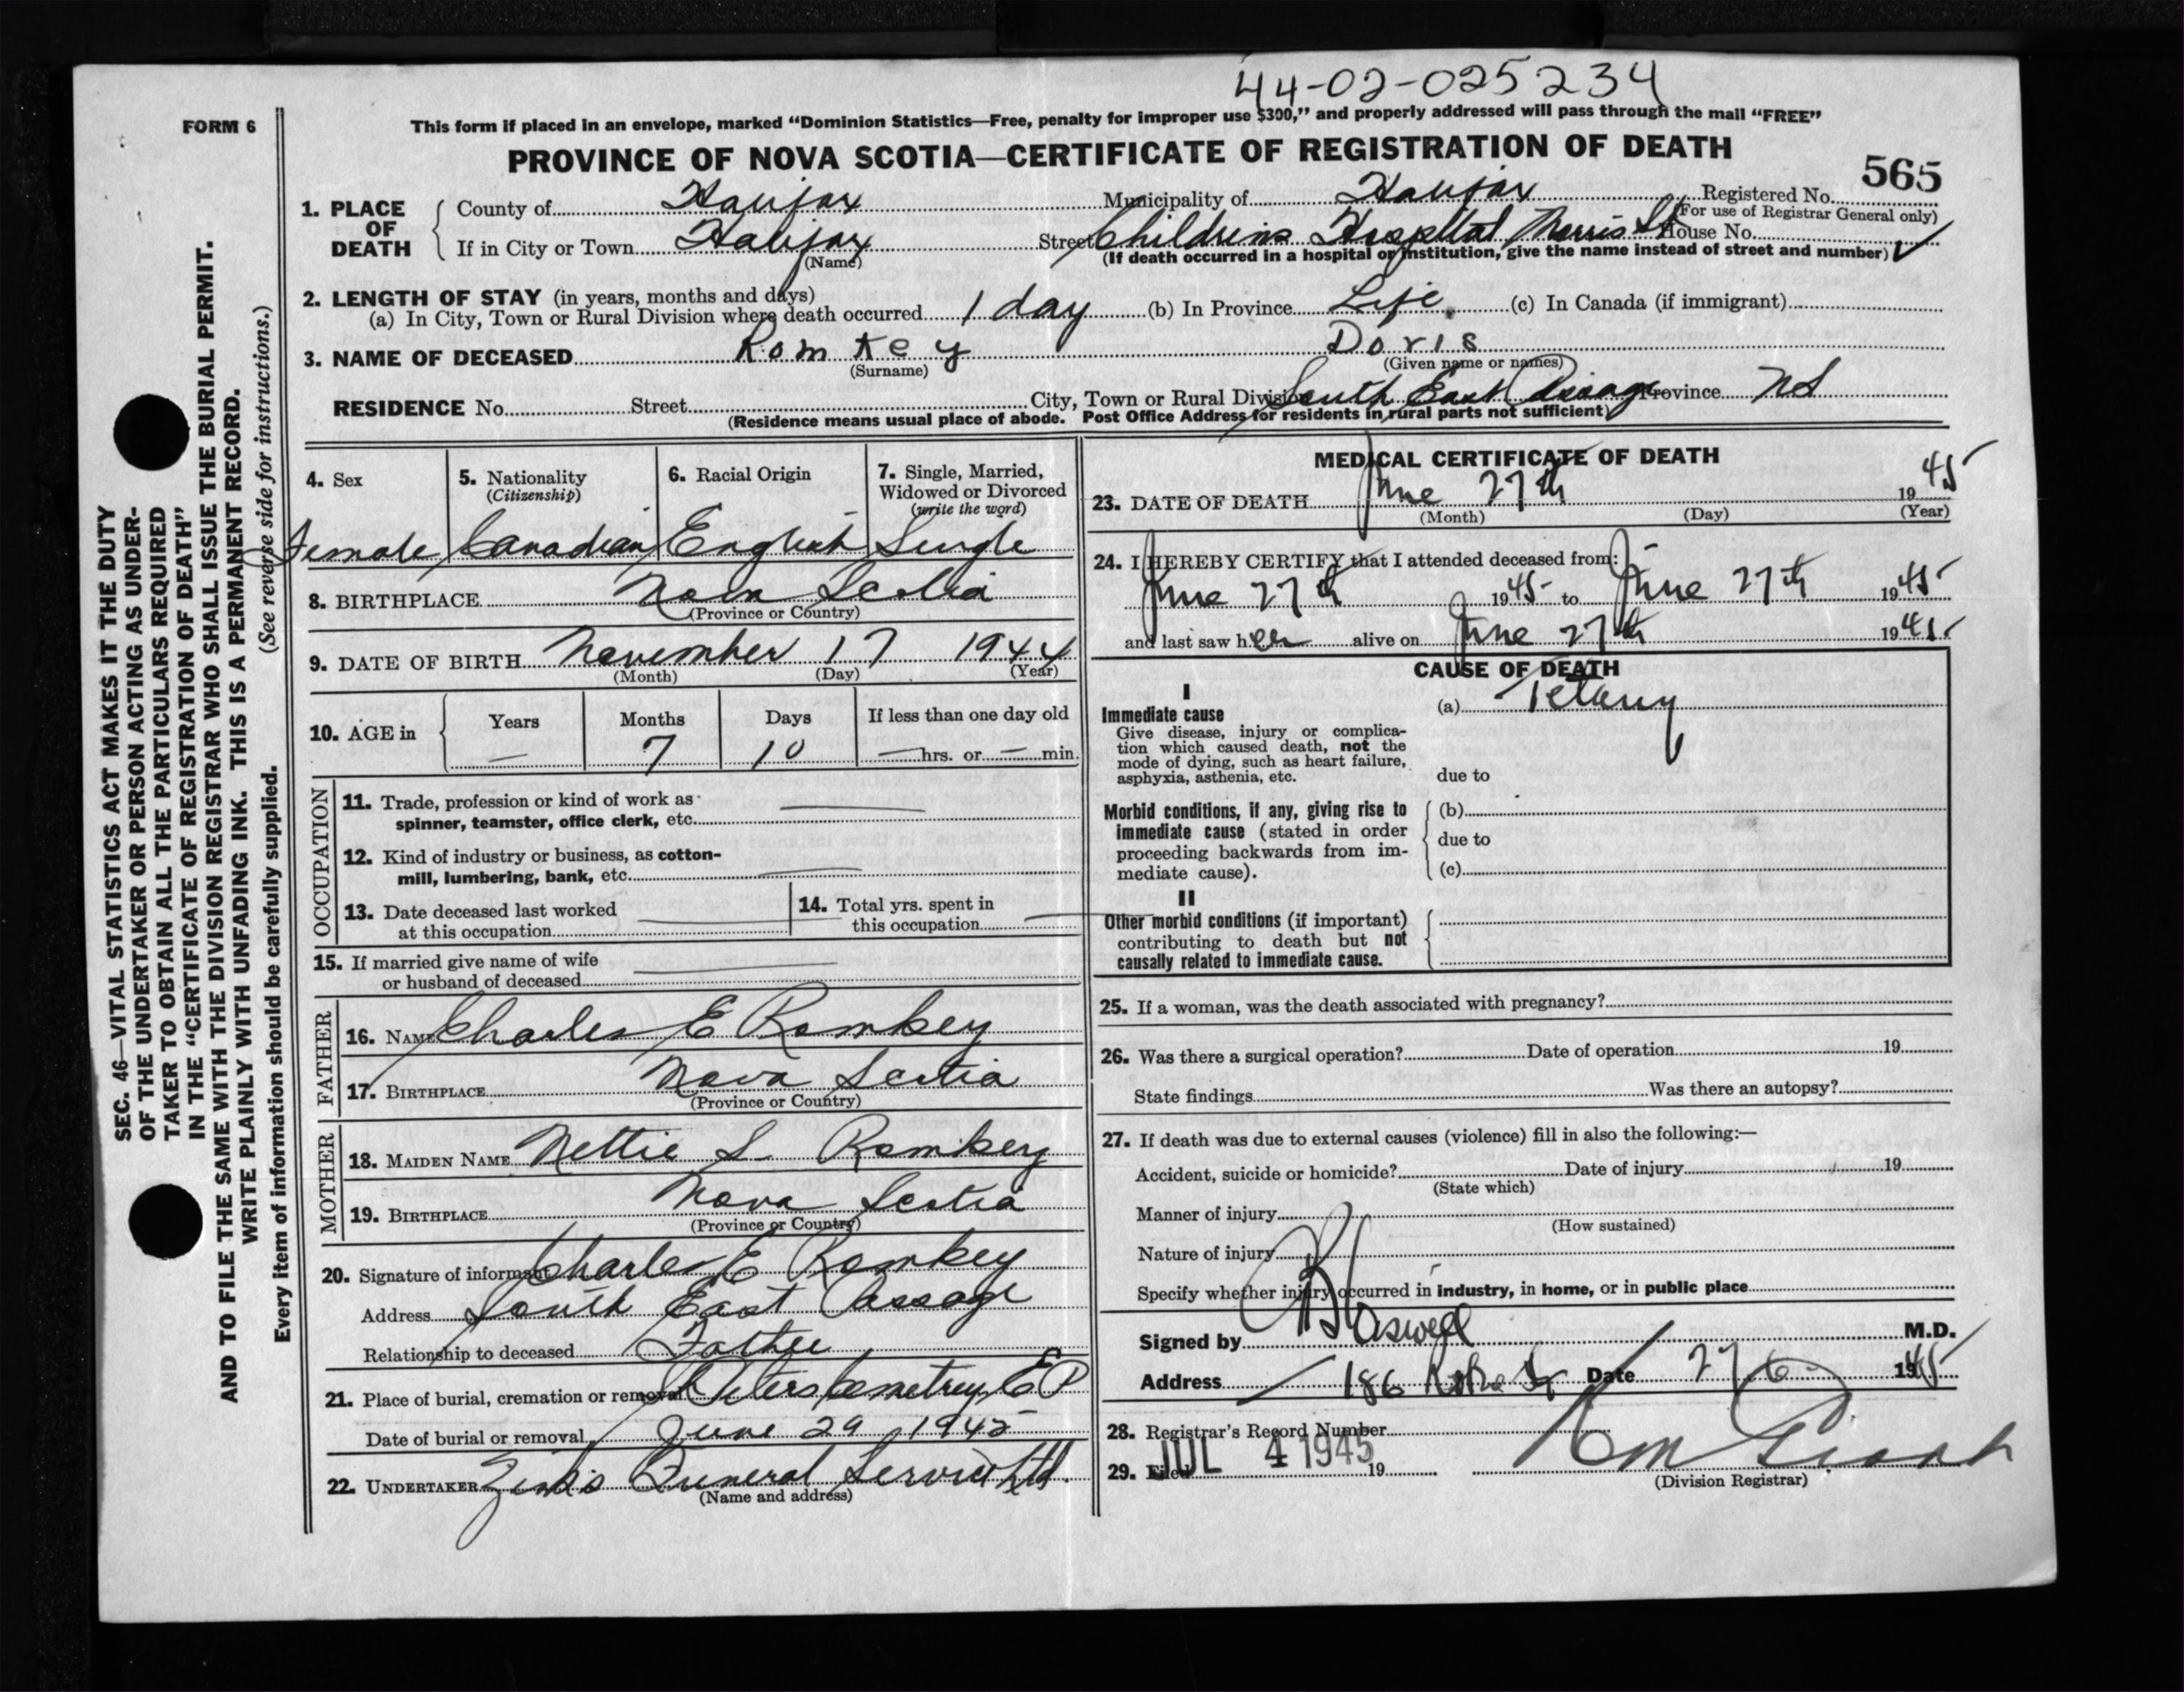 44-02-025234
FORM 6
This form if placed in an envelope, marked "Dominion Statistics—Free, penalty for improper use $300," and properly addressed will pass through the mail "FREE"
PROVINCE OF NOVA SCOTIA—CERTIFICATE OF REGISTRATION OF DEATH
565
1. PLACE OF DEATH
County of Halifax Municipality of Halifax Registered No.
(For use of Registrar General only)
If in City or Town Halifax Street Childrens Hospital Morris St House No.
(Name) (If death occurred in a hospital or institution, give the name instead of street and number)
2. LENGTH OF STAY (in years, months and days)
(a) In City, Town or Rural Division where death occurred 1 day (b) In Province Life (c) In Canada (if immigrant)
3. NAME OF DECEASED Romkey Doris
(Surname) (Given name or names)
RESIDENCE No. Street City, Town or Rural Division South East Passage Province NS
(Residence means usual place of abode. Post Office Address for residents in rural parts not sufficient)
4. Sex
Female
5. Nationality
(Citizenship)
Canadian
6. Racial Origin
English
7. Single, Married,
Widowed or Divorced
(write the word)
Single
8. BIRTHPLACE Nova Scotia
(Province or Country)
9. DATE OF BIRTH November 17 1944
(Month) (Day) (Year)
10. AGE in
Years Months Days If less than one day old
— 7 10 — hrs. or — min.
OCCUPATION
11. Trade, profession or kind of work as
spinner, teamster, office clerk, etc.
12. Kind of industry or business, as cotton-
mill, lumbering, bank, etc.
13. Date deceased last worked
at this occupation
14. Total yrs. spent in
this occupation
15. If married give name of wife
or husband of deceased
FATHER
16. NAME Charles E Romkey
17. BIRTHPLACE Nova Scotia
(Province or Country)
MOTHER
18. MAIDEN NAME Nettie S. Romkey
19. BIRTHPLACE Nova Scotia
(Province or Country)
20. Signature of informant Charles E Romkey
Address South East Passage
Relationship to deceased Father
21. Place of burial, cremation or removal St Peters Cemetrey E P
Date of burial or removal June 29 1945
22. UNDERTAKER Zink's Funeral Service Ltd.
(Name and address)
MEDICAL CERTIFICATE OF DEATH
23. DATE OF DEATH June 27th 1945
(Month) (Day) (Year)
24. I HEREBY CERTIFY that I attended deceased from:
June 27th 1945 to June 27th 1945
and last saw her alive on June 27th 1945
CAUSE OF DEATH
I
Immediate cause
Give disease, injury or complica-
tion which caused death, not the
mode of dying, such as heart failure,
asphyxia, asthenia, etc.
(a) Tetany
due to
Morbid conditions, if any, giving rise to
immediate cause (stated in order
proceeding backwards from im-
mediate cause).
(b)
due to
(c)
II
Other morbid conditions (if important)
contributing to death but not
causally related to immediate cause.
25. If a woman, was the death associated with pregnancy?
26. Was there a surgical operation? Date of operation 19
State findings Was there an autopsy?
27. If death was due to external causes (violence) fill in also the following:—
Accident, suicide or homicide? Date of injury 19
(State which)
Manner of injury
(How sustained)
Nature of injury
Specify whether injury occurred in industry, in home, or in public place
Signed by M.D.
Address 186 Date 27 6 1945
28. Registrar's Record Number
29. Filed JUL 4 1945 19
(Division Registrar)
SEC. 46—VITAL STATISTICS ACT MAKES IT THE DUTY
OF THE UNDERTAKER OR PERSON ACTING AS UNDER-
TAKER TO OBTAIN ALL THE PARTICULARS REQUIRED
IN THE "CERTIFICATE OF REGISTRATION OF DEATH"
AND TO FILE THE SAME WITH THE DIVISION REGISTRAR WHO SHALL ISSUE THE BURIAL PERMIT.
WRITE PLAINLY WITH UNFADING INK. THIS IS A PERMANENT RECORD.
Every item of information should be carefully supplied. (See reverse side for instructions.)